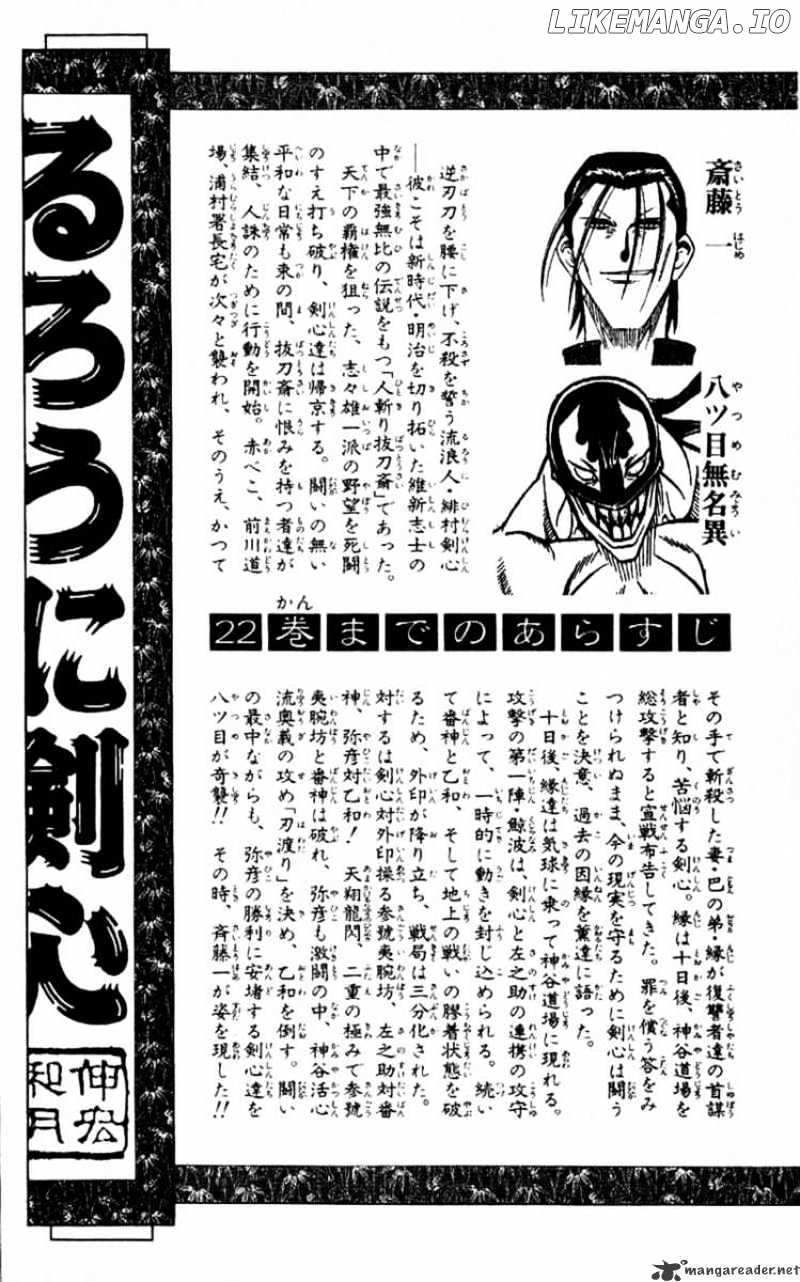 LIKEMANGA.IO
斎藤一
さいとう はじめ
八ツ目無名異
やつめむみょうい
逆刃刀を腰に下げ、不殺を誓う流浪人・緋村剣心
──彼こそは新時代・明治を切り拓いた維新志士の
中で最強無比の伝説をもつ「人斬り抜刀斎」であった。
天下の覇権を狙った、志々雄一派の野望を死闘
のすえ打ち破り、剣心達は帰京する。闘いの無い
平和な日常も束の間、抜刀斎に恨みを持つ者達が
集結、人誅のために行動を開始。赤べこ、前川道
場、浦村署長宅が次々と襲われ、そのうえ、かつて
かん
22巻までのあらすじ
その手で斬殺した妻・巴の弟・縁が復讐者達の首謀
者と知り、苦悩する剣心。縁は十日後、神谷道場を
総攻撃すると宣戦布告してきた。罪を償う答をみ
つけられぬまま、今の現実を守るために剣心は闘う
ことを決意、過去の因縁を薫達に語った。
十日後、縁達は気球に乗って神谷道場に現れる。
攻撃の第一陣・鯨波は、剣心と左之助の連携の攻守
によって、一時的に動きを封じ込められる。続い
て番神と乙和、そして地上の戦いの膠着状態を破
るため、外印が降り立ち、戦局は三分化された。
対するは剣心対外印操る参號夷腕坊、左之助対番
神、弥彦対乙和！天翔龍閃、二重の極みで参號
夷腕坊と番神は破れ、弥彦も激闘の中、神谷活心
流奥義の攻め「刃渡り」を決め、乙和を倒す。闘い
の最中ながらも、弥彦の勝利に安堵する剣心達を
八ツ目が奇襲!!その時、斉藤一が姿を現した!!
るろうに剣心
和月
伸宏
mangareader.net